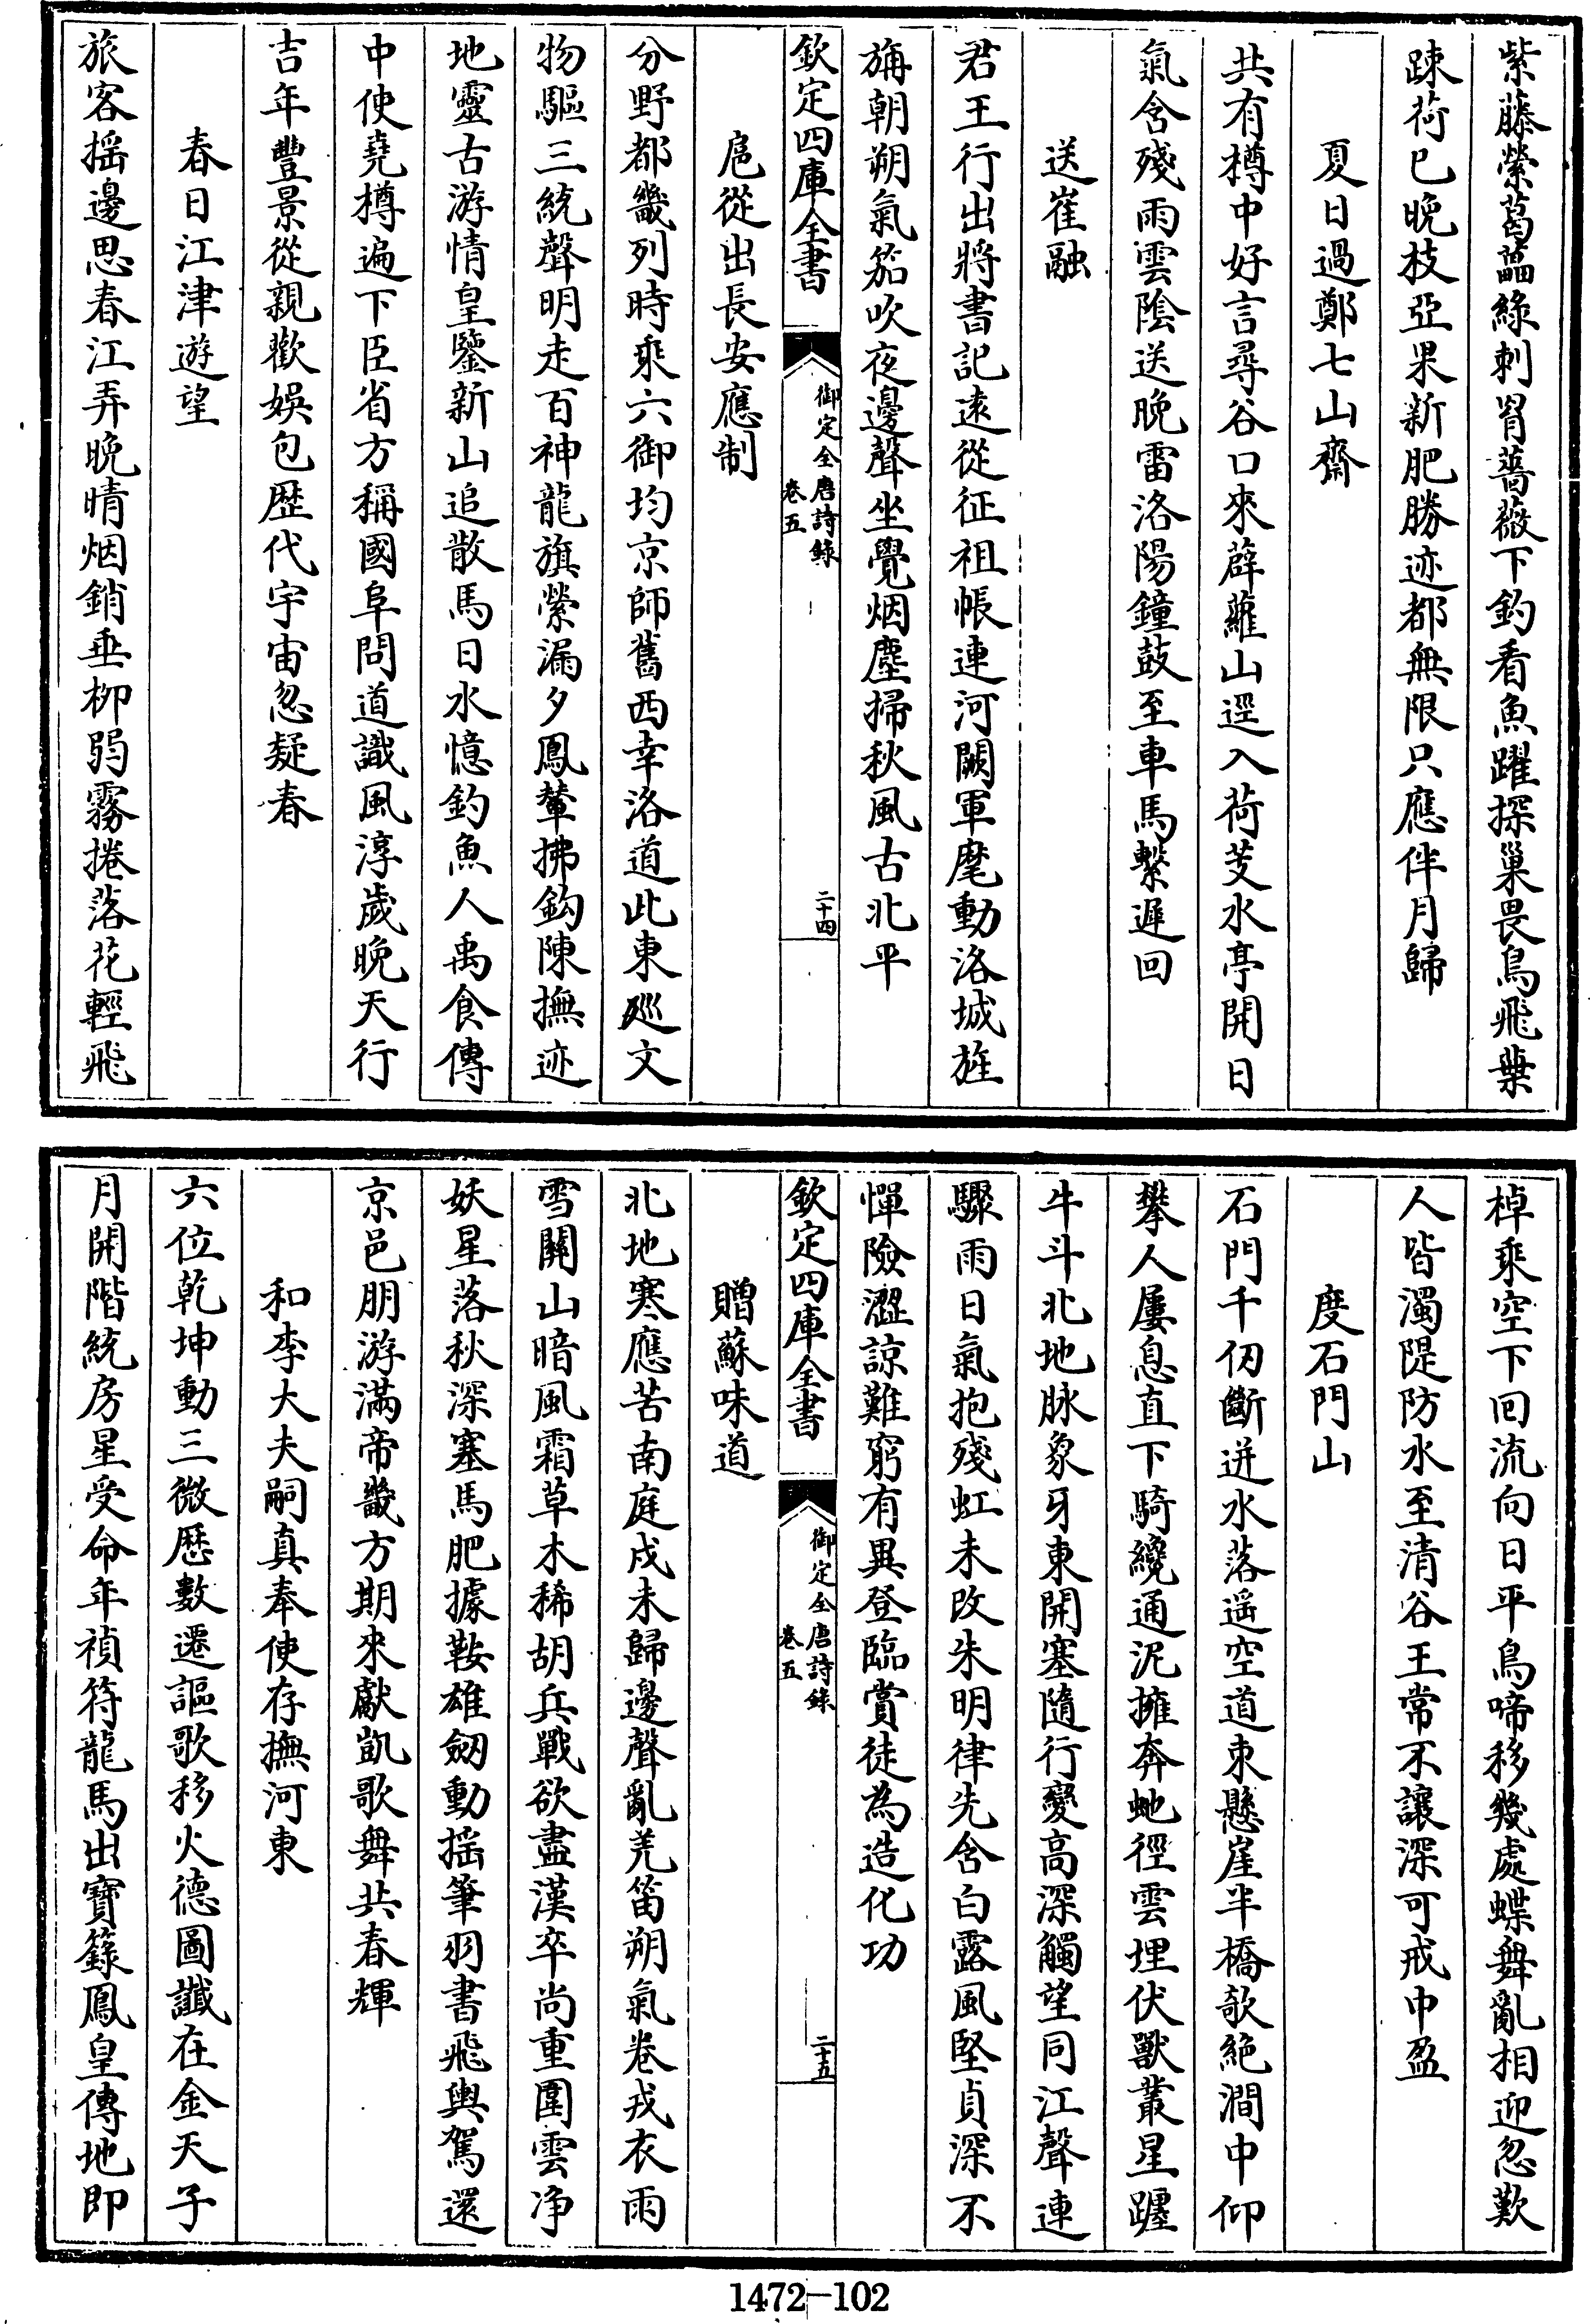 紫藤縈葛藟綠刺罥薔薇下釣看魚躍探巢畏鳥飛葉
踈荷已晚枝亞果新肥勝迹都無限只應伴月歸
夏日過鄭七山齋
共有樽中好言尋谷口來薜蘿山逕入荷芰水亭開日
氣含殘雨雲陰送晚雷洛陽鐘鼓至車馬繫遲回
送崔融
君王行出將書記遠從征祖帳連河闕軍麾動洛城旌
旃朝朔氣笳吹夜邊聲坐覺烟塵掃秋風古北平
欽定四庫全書
御定全唐詩錄
卷五
二十四
扈從出長安應制
分野都畿列時乘六御均京師舊西幸洛道此東廵文
物驅三統聲明走百神龍旗縈漏夕鳳輦拂鈎陳撫迹
地靈古游情皇鑒新山追散馬日水憶釣魚人禹食傳
中使堯樽遍下臣省方稱國阜問道識風淳歲晚天行
吉年豐景從親歡娛包歴代宇宙忽疑春
春日江津遊望
旅客揺邊思春江弄晚晴烟銷垂柳弱霧捲落花輕飛
棹乘空下回流向日平鳥啼移幾處蝶舞亂相迎忽歎
人皆濁隄防水至清谷王常不讓深可戒中盈
度石門山
石門千仞斷迸水落遥空道束懸崖半橋欹絶澗中仰
攀人屢息直下騎纔通泥擁奔蛇徑雲埋伏獸叢星躔
牛斗北地脉象牙東開塞隨行變高深觸望同江聲連
驟雨日氣抱殘虹未改朱明律先含白露風堅貞深不
憚險澀諒難窮有異登臨賞徒為造化功
欽定四庫全書
御定全唐詩錄
卷五
二十五
贈蘇味道
北地寒應苦南庭戍未歸邊聲亂羌笛朔氣卷戎衣雨
雪關山暗風霜草木稀胡兵戰欲盡漢卒尚重圍雲净
妖星落秋深塞馬肥據鞍雄劒動揺筆羽書飛輿駕還
京邑朋游滿帝畿方期來獻凱歌舞共春輝
和李大夫嗣真奉使存撫河東
六位乾坤動三微歴數遷謳歌移火德圖讖在金天子
月開階統房星受命年禎符龍馬出寶籙鳳皇傳地即
1472-102